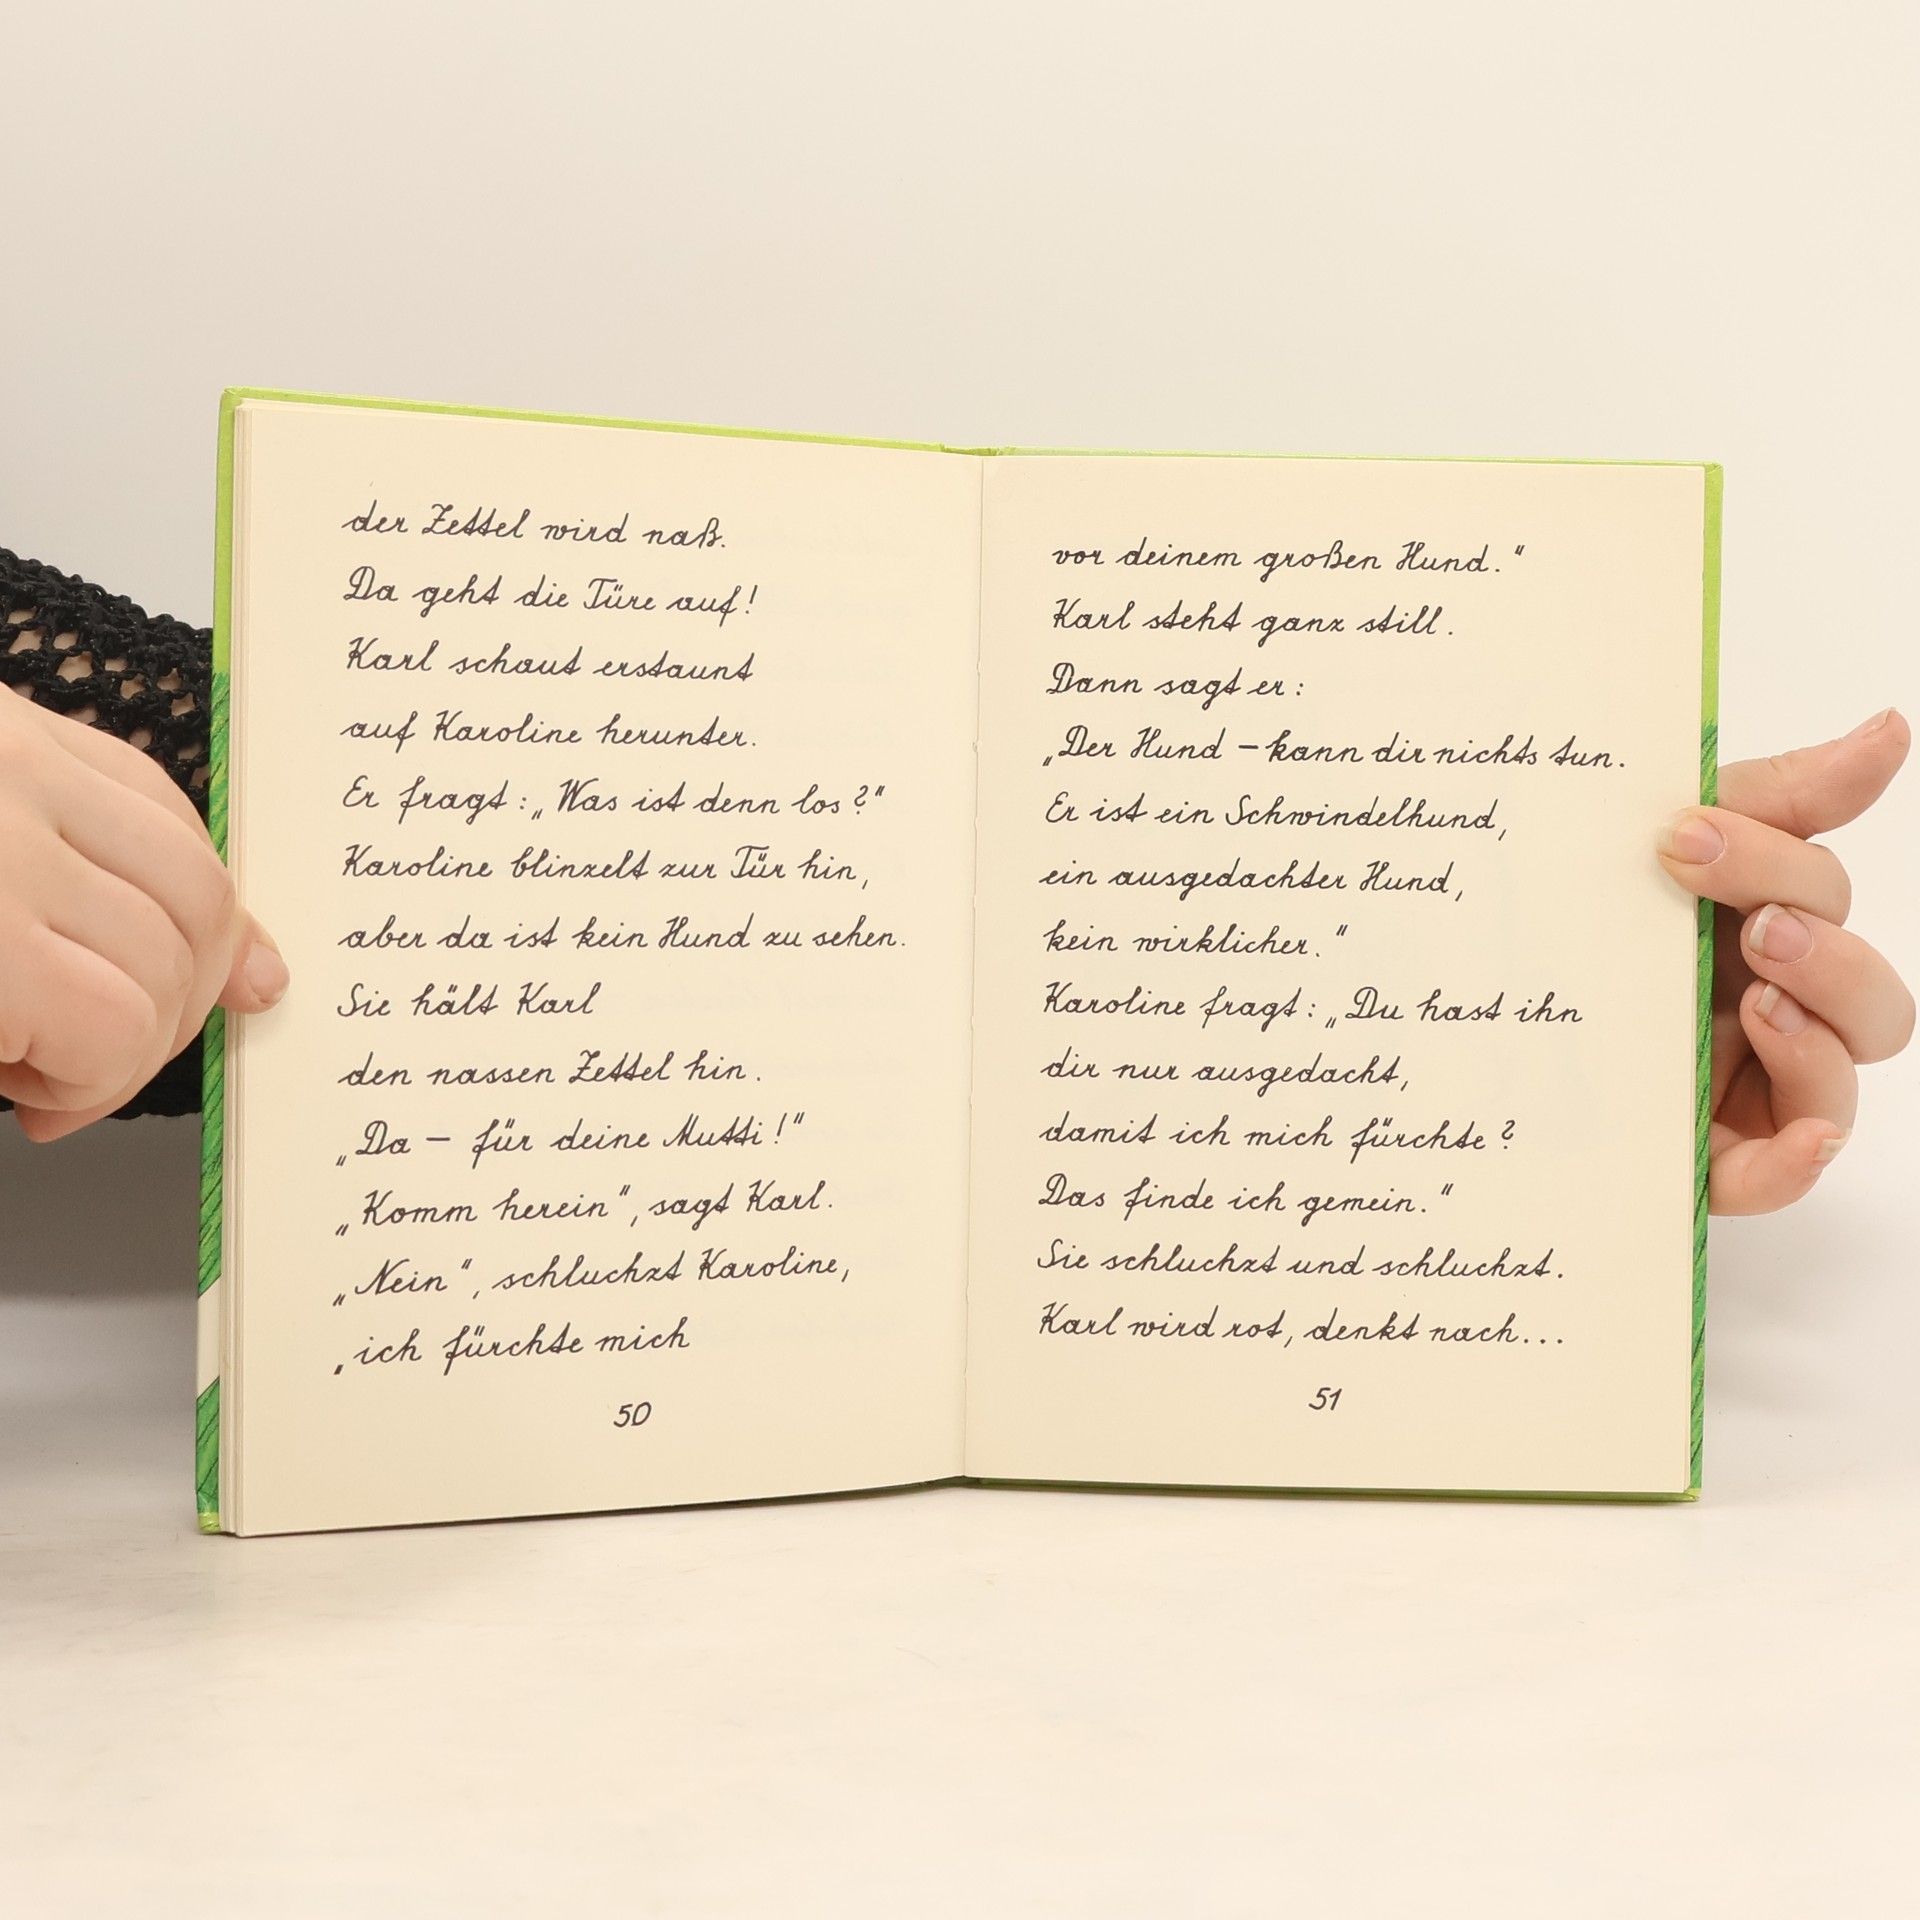 der Zettel wird naß.
Da geht die Türe auf!
Karl schaut erstaunt
auf Karoline herunter.
Er fragt: „Was ist denn los?“
Karoline blinzelt zur Tür hin,
aber da ist kein Hund zu sehen.
Sie hält Karl
den nassen Zettel hin.
„Da – für deine Mutti!“
„Komm herein“, sagt Karl.
„Nein“, schluchzt Karoline,
„ich fürchte mich
50
vor deinem großen Hund.“
Karl steht ganz still.
Dann sagt er:
„Der Hund – kann dir nichts tun.
Er ist ein Schwindelhund,
ein ausgedachter Hund,
kein wirklicher.“
Karoline fragt: „Du hast ihn
dir nur ausgedacht,
damit ich mich fürchte?
Das finde ich gemein.“
Sie schluchzt und schluchzt.
Karl wird rot, denkt nach...
51